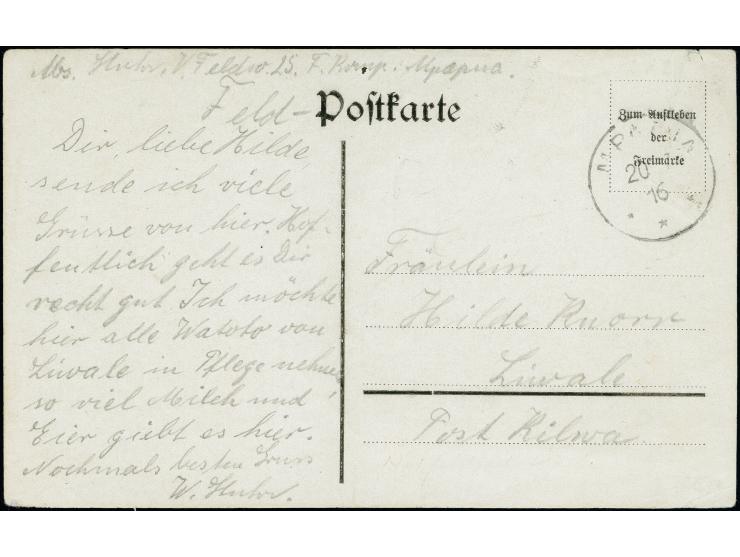 Abs. Huhr, V. Feldw. 25. F. Komp. Mpapua.
Feld-Postkarte
Zum Aufkleben
der
Freimarke
MPAPUA
20
16
Dir, liebe Hilde,
sende ich viele
Grüsse von hier. Hof-
fentlich geht es Dir
recht gut. Ich möchte
hier alle Watoto von
Liwale in Pflege nehmen,
so viel Milch und
Eier giebt es hier.
Nochmals besten Gruss
W. Huhr.
Fräulein
Hilde Knorr
Liwale
Post Kilwa